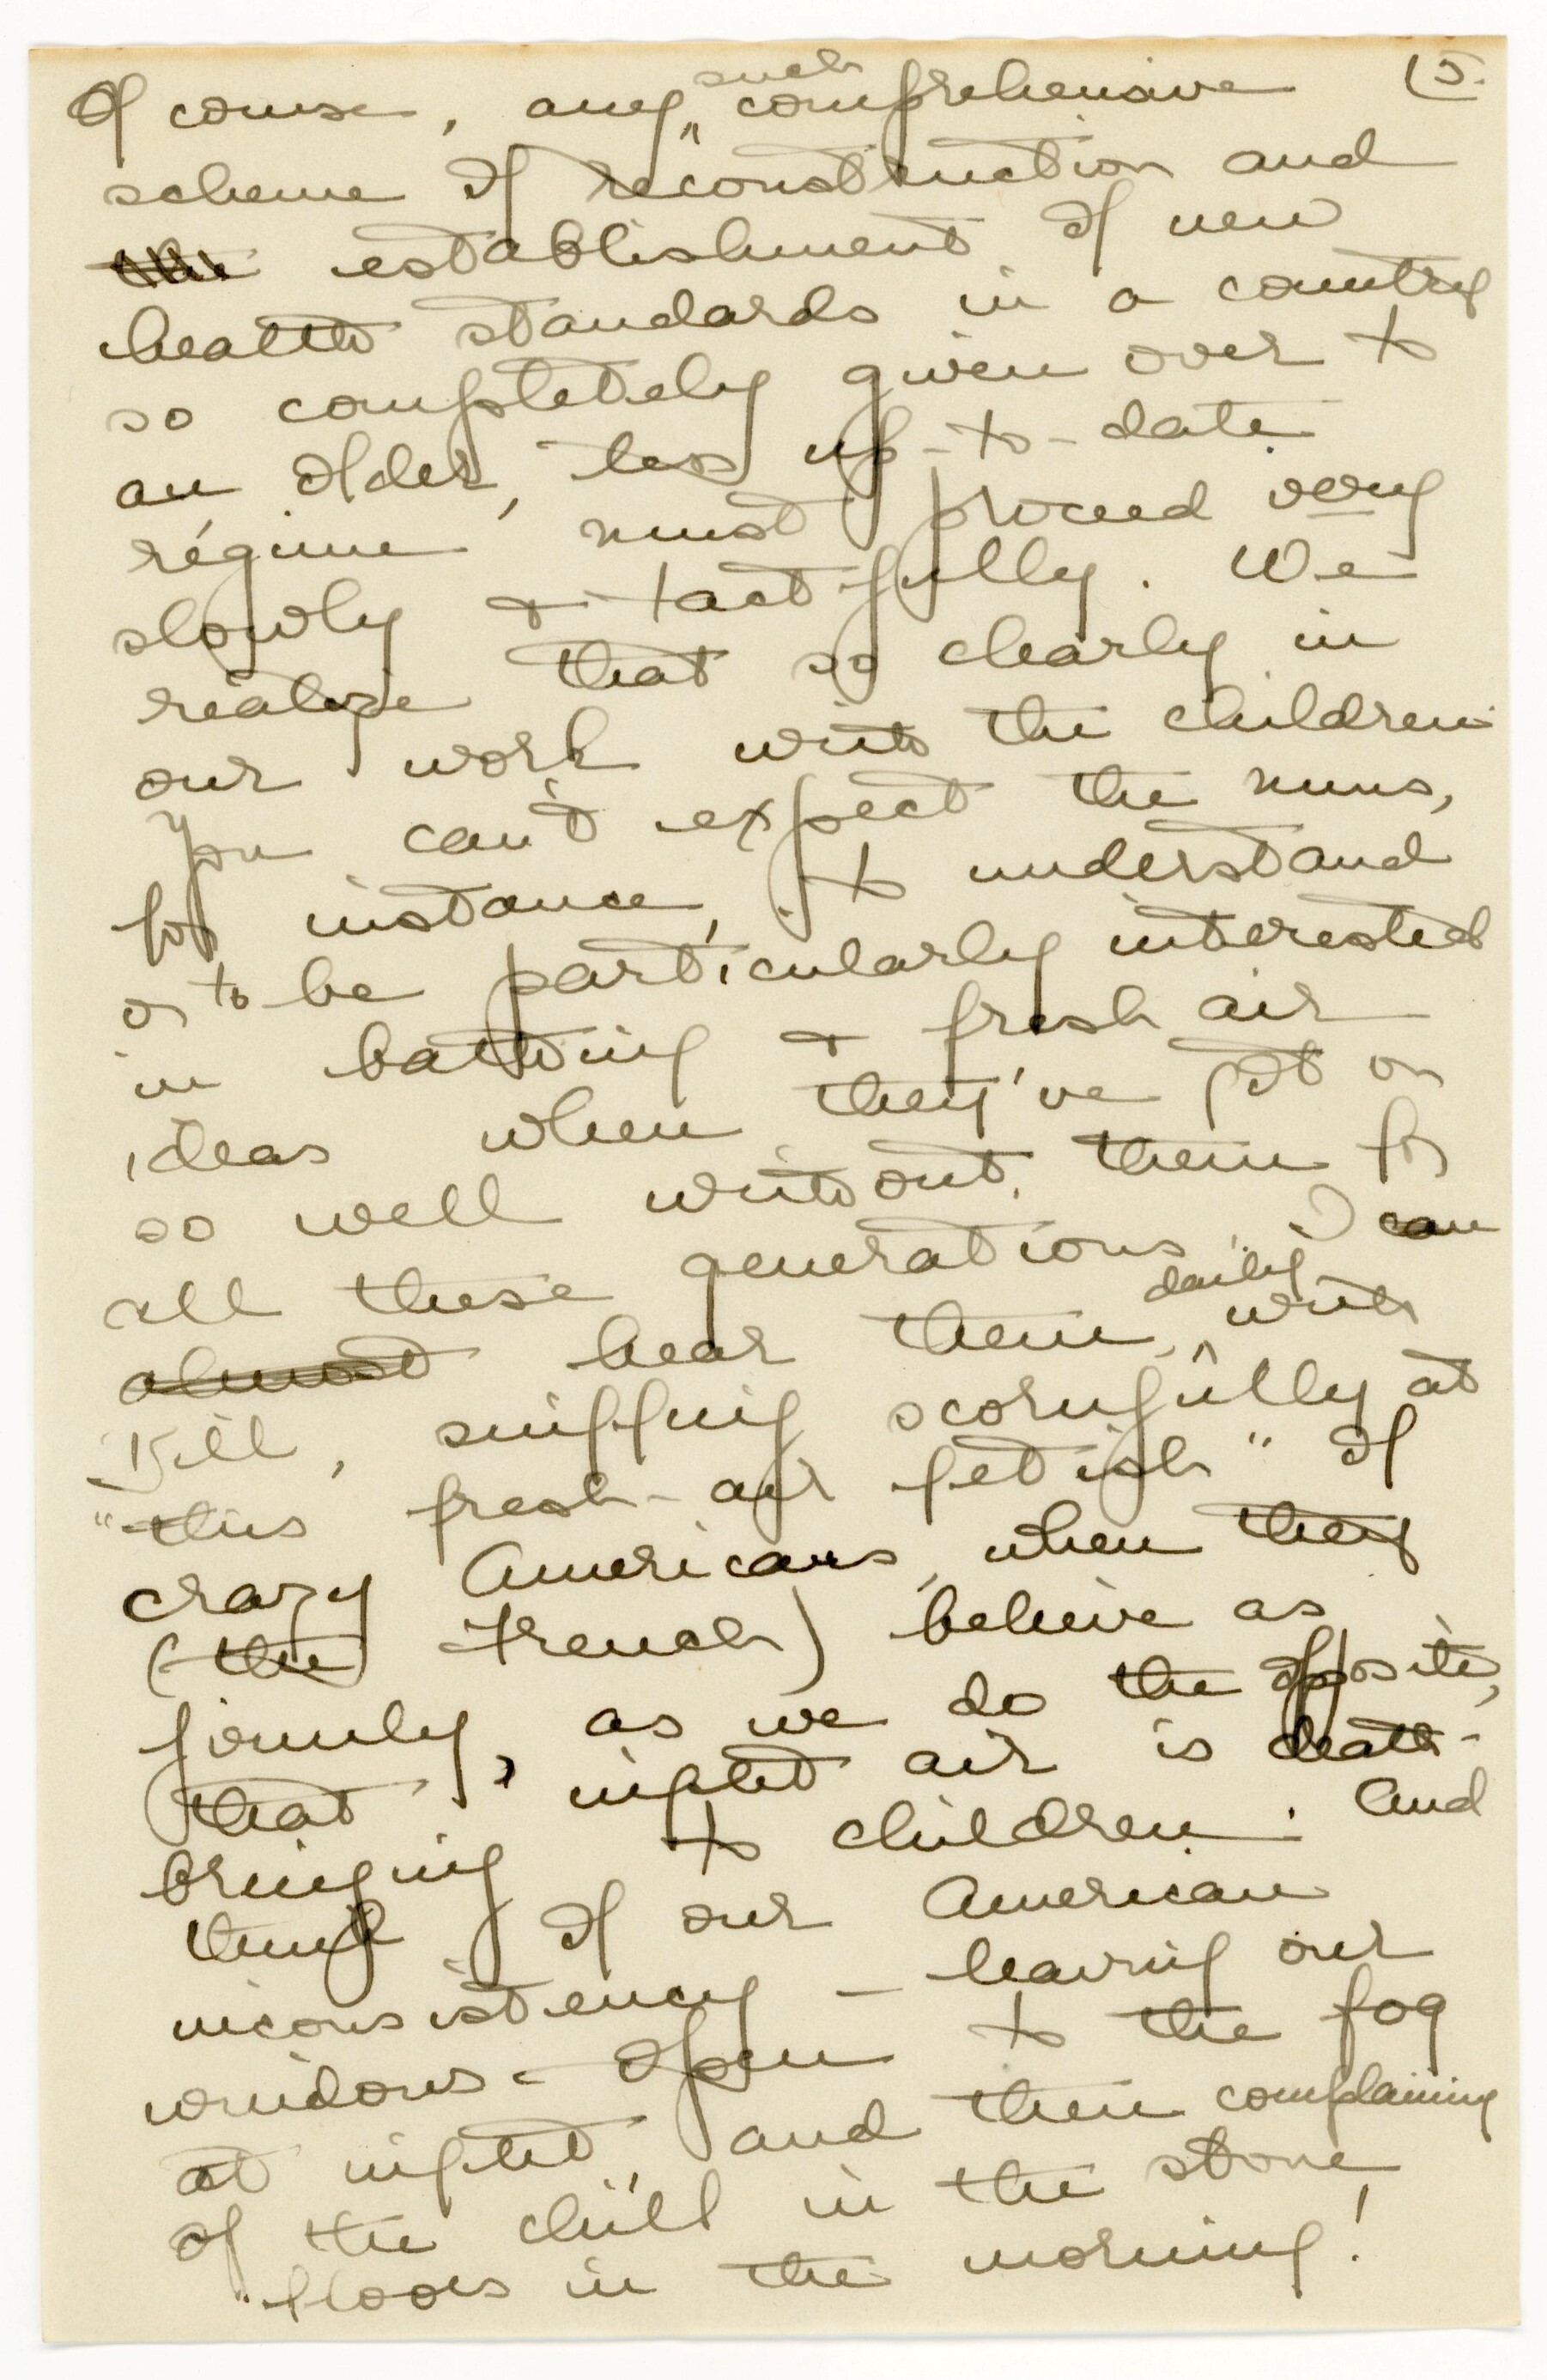 Of course, any such comprehensive 15.
scheme of reconstruction and
the establishment of new
health standards in a country
so completely given over to
an older, less up-to-date
régime, must proceed very
slowly & tactfully. We
realize that so clearly in
our work with the children.
You can't expect the nuns,
for instance, to understand
or to be particularly interested
in bathing & fresh air
ideas when they've got on
so well without them for
all these generations. I can
almost hear them, daily with
Bill, sniffing scornfully at
"this fresh-air fetish" of
crazy Americans, when they
(the French) believe as
firmly, as we do the opposite,
that night air is death-
bringing to children. And
think of our American
inconsistency – leaving our
windows open to the fog
at night, and then complaining
of the chill in the stone
floors in the morning!